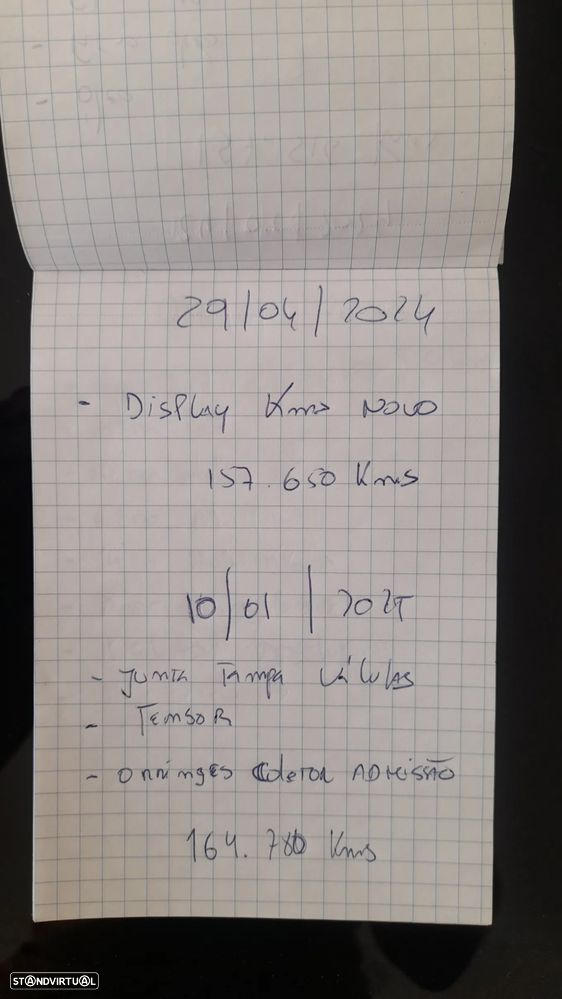 29/04/2024
- Display Kms NOVO
157.650 Kms
10/01/2025
- Junta Tampa Válulas
- Tensor
- Orringes Coletor ADMISSÃO
164.780 Kms
STANDVIRTUAL